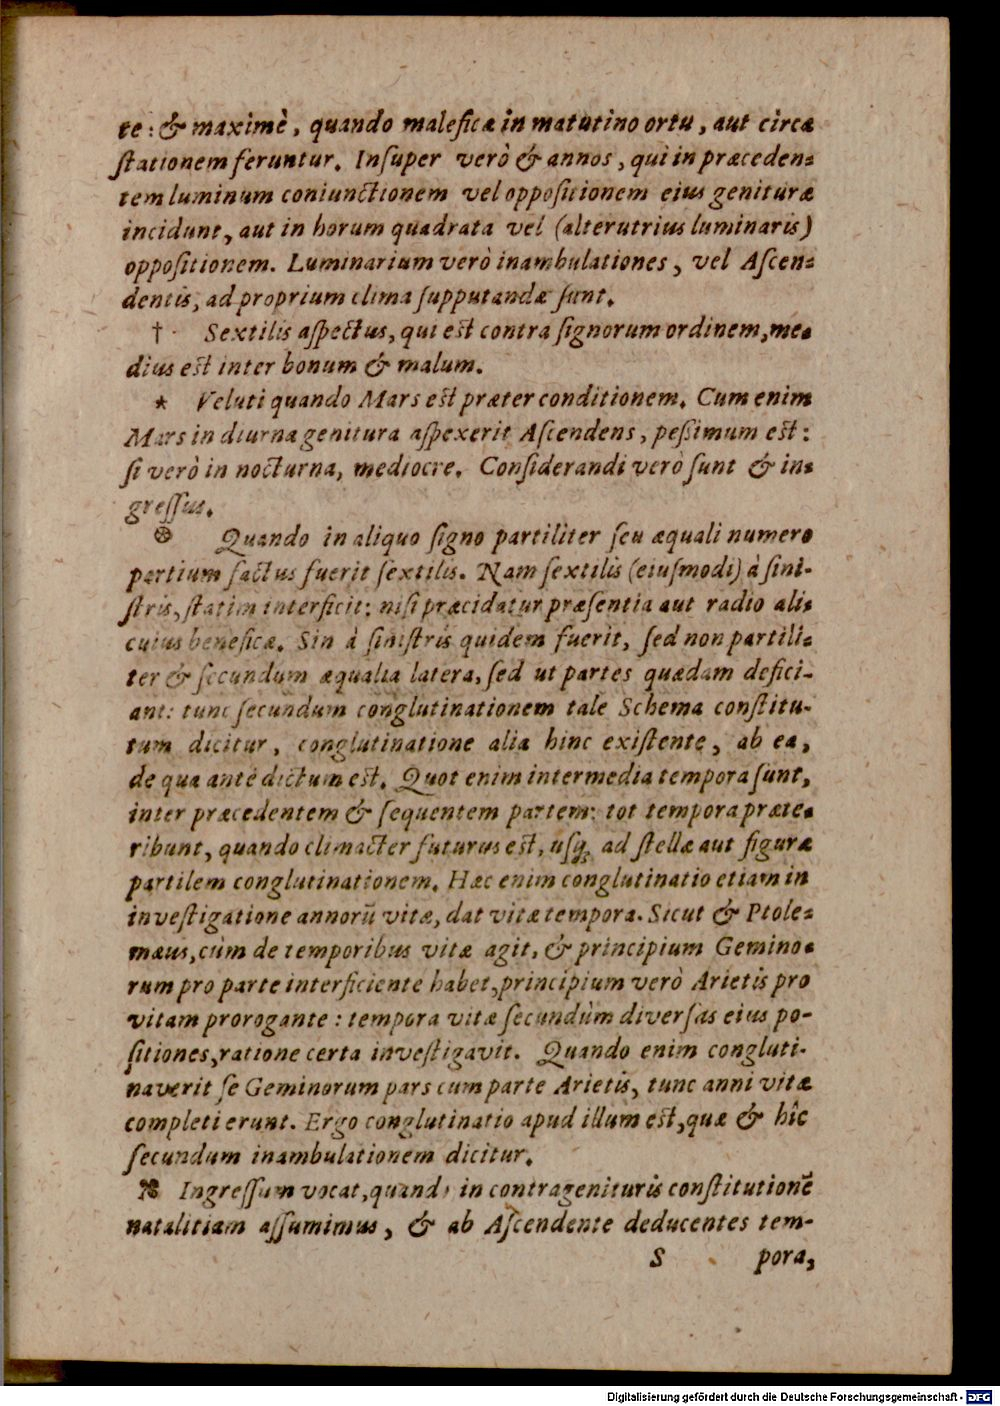 te: & maximè, quando maleficæ in matutino ortu, aut circa
ſtationem feruntur. Inſuper verò & annos, qui in præceden=
tem luminum coniunctionem vel oppoſitionem eius genituræ
incidunt, aut in horum quadrata vel (alterutrius luminaris)
oppoſitionem. Luminarium verò inambulationes, vel Aſcen=
dentis, ad proprium clima ſupputandæ ſunt.
† Sextilis aſpectus, qui est contra ſignorum ordinem, me=
dius est inter bonum & malum.
* Veluti quando Mars est præter conditionem. Cum enim
Mars in diurna genitura aſpexerit Aſcendens, peßimum est:
ſi verò in nocturna, mediocre. Conſiderandi verò ſunt & in=
greſſus.
⊛ Quando in aliquo ſigno partiliter ſeu æquali numero
partium factus fuerit ſextilis. Nam ſextilis (eiuſmodi) à ſini-
ſtris, ſtatim interficit: niſi præcidatur præſentia aut radio ali=
cuius beneficæ. Sin à ſiniſtris quidem fuerit, ſed non partili=
ter & ſecundum æqualia latera, ſed ut partes quædam defici-
ant: tunc ſecundum conglutinationem tale Schema conſtitu-
tum dicitur, conglutinatione alia hinc exiſtente, ab ea,
de qua antè dictum est. Quot enim intermedia tempora ſunt,
inter præcedentem & ſequentem partem: tot tempora præte=
ribunt, quando climacter futurus est, uſq; ad ſtellæ aut figuræ
partilem conglutinationem. Hæc enim conglutinatio etiam in
inveſtigatione annorū vitæ, dat vitæ tempora. Sicut & Ptole=
mæus, cùm de temporibus vitæ agit, & principium Gemino=
rum pro parte interficiente habet, principium verò Arietis pro
vitam prorogante: tempora vitæ ſecundùm diverſas eius po-
ſitiones, ratione certa inveſtigavit. Quando enim congluti-
naverit ſe Geminorum pars cum parte Arietis, tunc anni vitæ
completi erunt. Ergo conglutinatio apud illum est, quæ & hîc
ſecundum inambulationem dicitur.
✤ Ingreſſum vocat, quando in contragenituris conſtitutionē
natalitiam aſſumimus, & ab Aſcendente deducentes tem-
S pora,
Digitalisierung gefördert durch die Deutsche Forschungsgemeinschaft - DFG